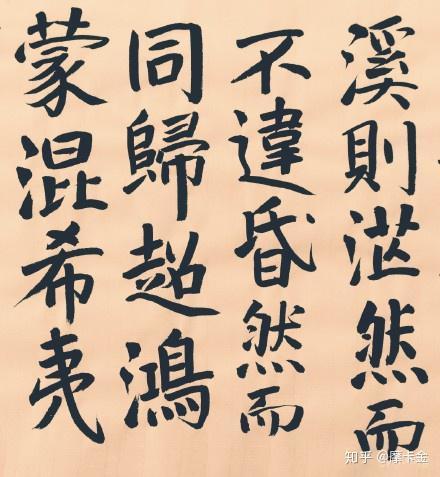 溪則茫然而
不違昏然而
同歸超鴻
蒙混希夷
知乎 @摩卡金